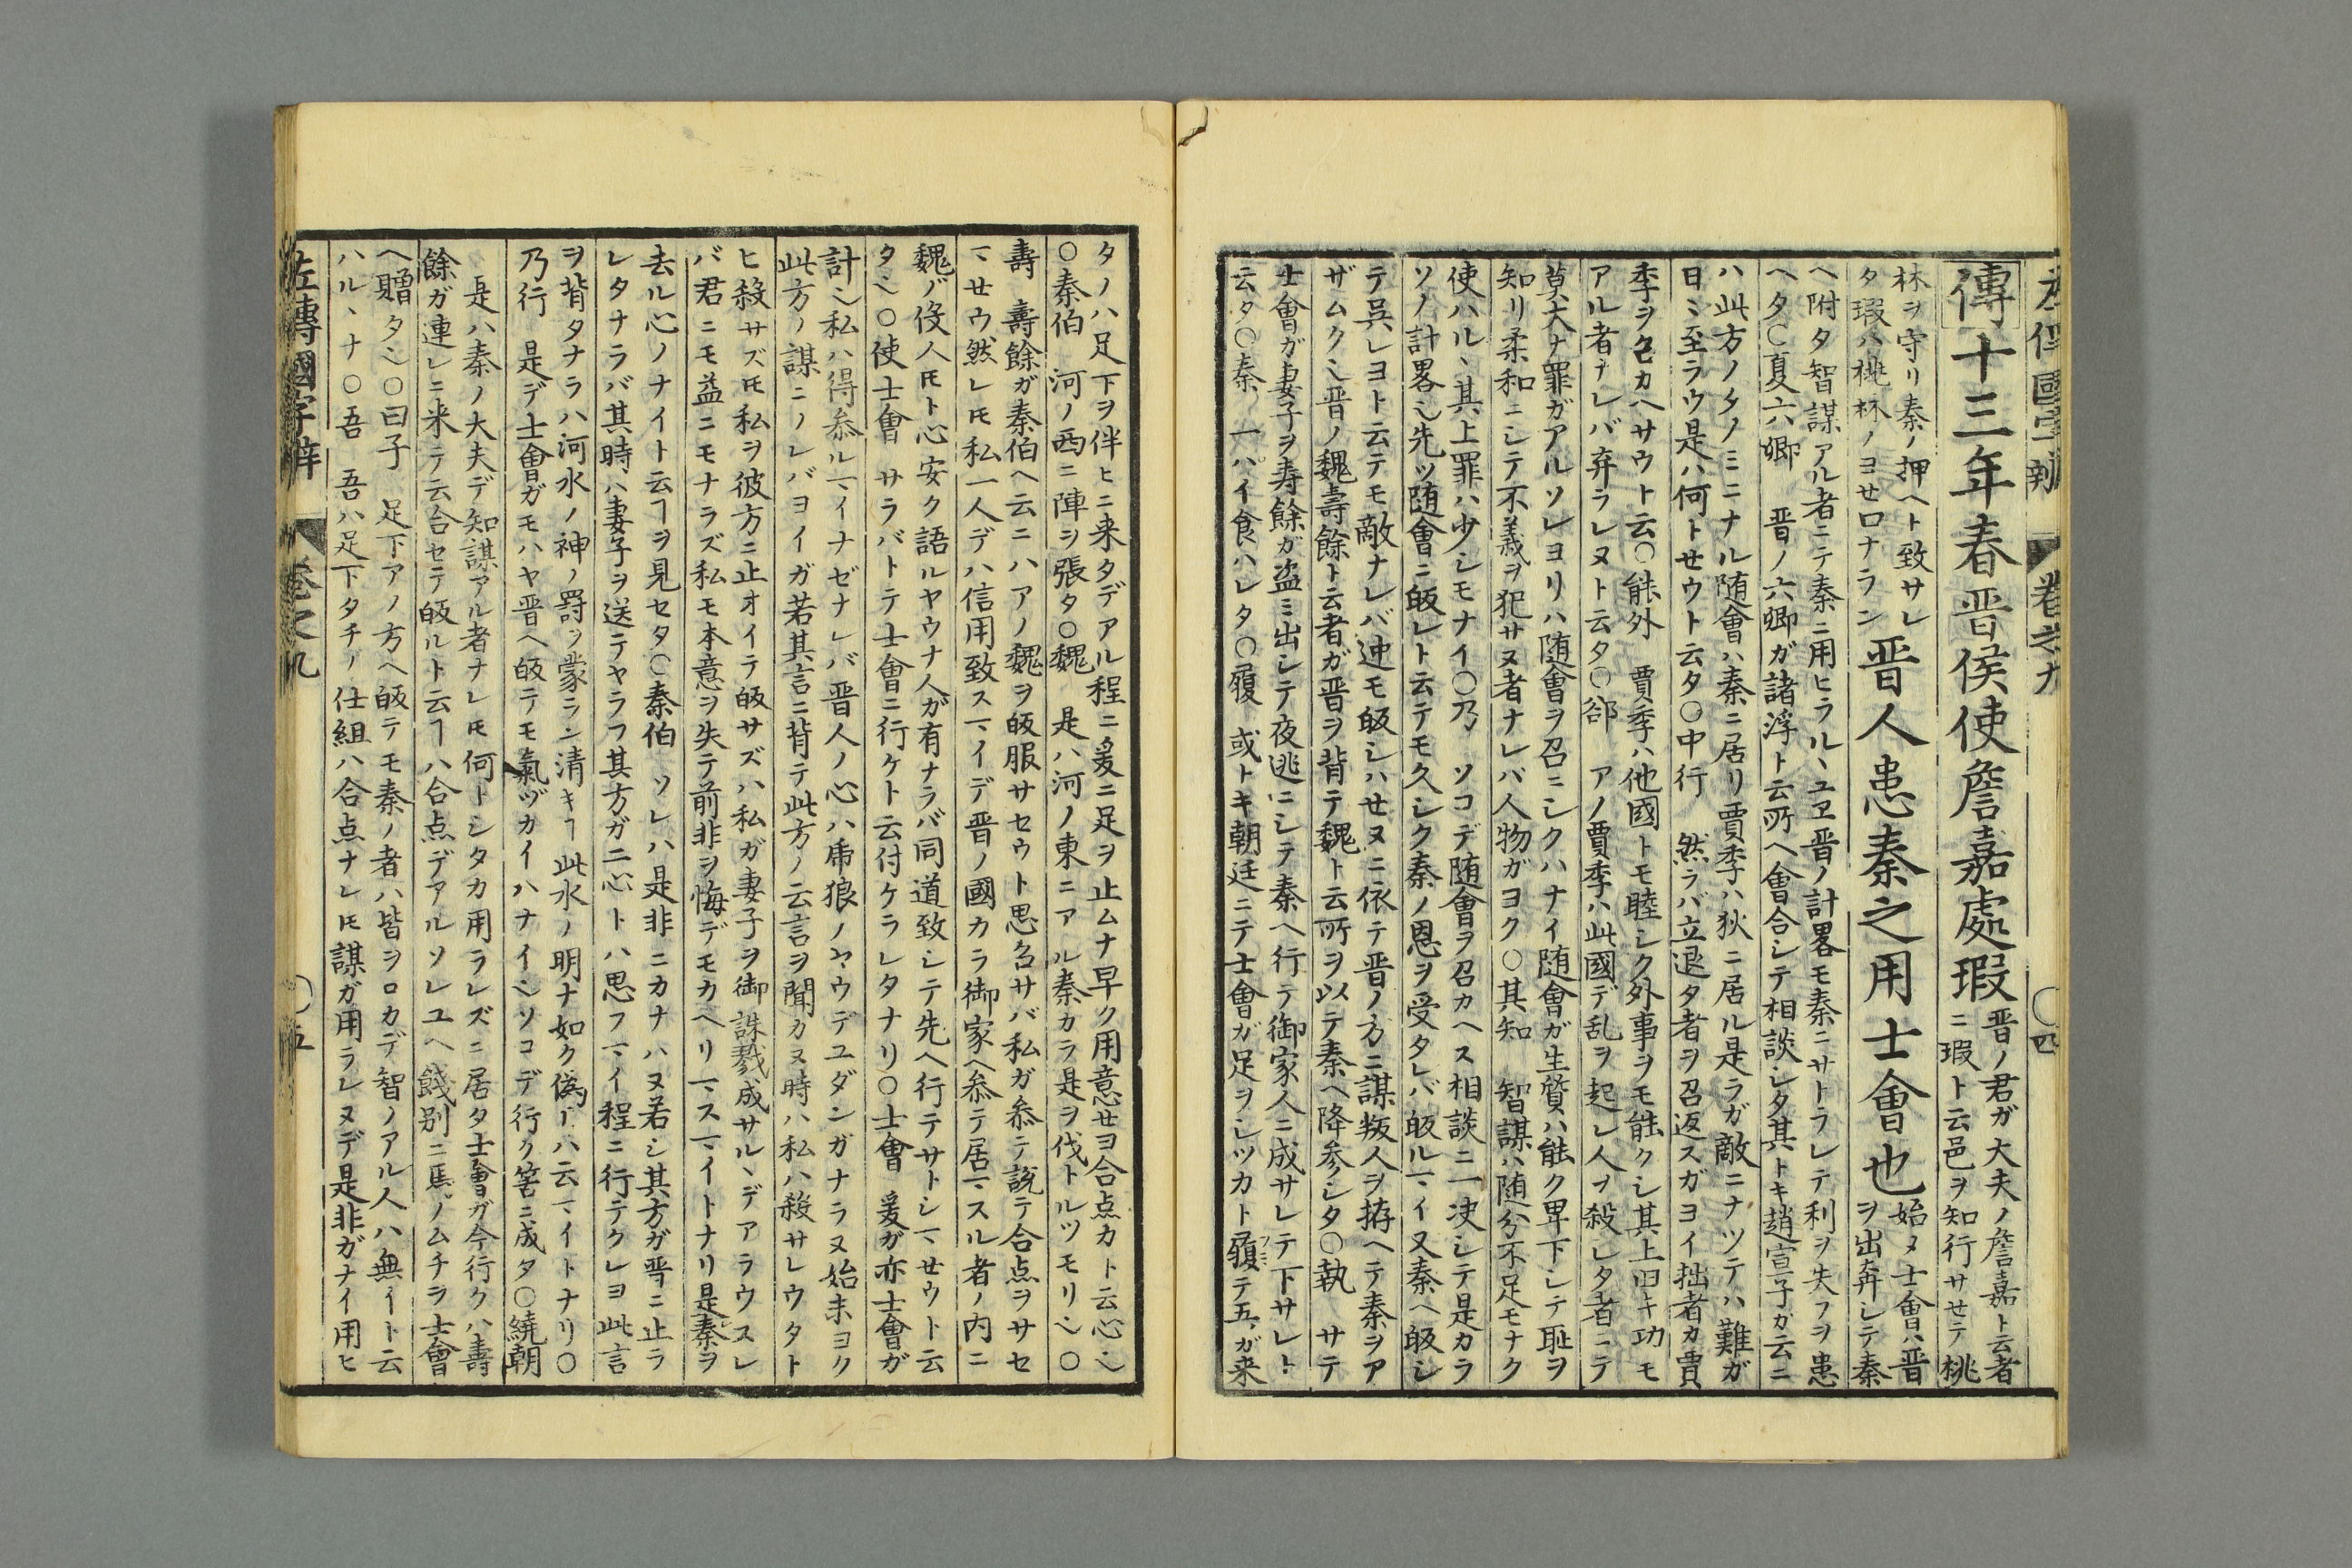 左傳國字辨 卷之九 〇四
傳十三年春晋侯使詹嘉處瑕
晋ノ君ガ大夫ノ詹嘉ト云者
ニ瑕ト云邑ヲ知行サセテ桃
林ヲ守リ秦ノ押ヘト致サレ
タ瑕ハ桃林ノヨセ口ナラン
晋人患秦之用士會也
始メ士會ハ晋
ヲ出奔シテ秦
ヘ附タ智謀アル者ニテ秦ニ用ヒラルヽユヱ晋ノ計畧モ秦ニサトラレテ利ヲ失フヲ患
ヘタ〇夏六卿 晋ノ六卿ガ諸浮ト云所ヘ會合シテ相談シタ其トキ趙宣子ガ云ニ
ハ此方ノタノミニナル随會ハ秦ニ居リ賈季ハ狄ニ居ル是ラガ敵ニナツテハ難ガ
日ヽ至ラウ是ハ何トセウト云タ〇中行 然ラバ立退タ者ヲ召返スガヨイ拙者カ賈
季ヲ召カヘサウト云〇能外 賈季ハ他國トモ睦シク外事ヲモ能クシ其上旧キ功モ
アル者ナレバ弃ラレヌト云タ〇郤 アノ賈季ハ此國デ乱ヲ起シ人ヲ殺シタ者ニテ
莫大ナ罪ガアルソレヨリハ随會ヲ召ニシクハナイ随會ガ生質ハ能ク卑下シテ耻ヲ
知リ柔和ニシテ不義ヲ犯サヌ者ナレバ人物ガヨク〇其知 智謀ハ随分不足モナク
使ハルヽ其上罪ハ少シモナイ〇乃 ソコデ随會ヲ召カヘス相談ニ一决シテ是カラ
ソノ計畧也先ツ随會ニ皈レト云テモ久シク秦ノ恩ヲ受タレバ皈ルマイ又秦ヘ皈シ
テ呉レヨト云テモ敵ナレバ迚モ皈シハセヌニ依テ晋ノ方ニ謀叛人ヲ拵ヘテ秦ヲア
ザムク也晋ノ魏壽餘ト云者ガ晋ヲ背テ魏ト云所ヲ以テ秦ヘ降参シタ〇執 サテ
士會ガ妻子ヲ寿餘ガ盗ミ出シテ夜迯ニシテ秦ヘ行テ御家人ニ成サレテ下サレト
云タ〇秦 一ハイ食ハレタ〇履 或トキ朝廷ニテ士會ガ足ヲシツカト履テ五ガ来
タノハ足下ヲ伴ヒニ来タデアル程ニ爰ニ足ヲ止ムナ早ク用意セヨ合点カト云心也
〇秦伯 河ノ西ニ陣ヲ張タ〇魏 是ハ河ノ東ニアル秦カラ是ヲ伐トルツモリ也〇
壽 壽餘ガ秦伯ヘ云ニハアノ魏ヲ皈服サセウト思召サバ私ガ参テ説テ合点ヲサセ
マセウ然レ𪜈私一人デハ信用致スマイデ晋ノ國カラ御家ヘ参テ居マスル者ノ内ニ
魏ノ役人𪜈ト心安ク語ルヤウナ人ガ有ナラバ同道致シテ先ヘ行テサトシマセウト云
タ也〇使士會 サラバトテ士會ニ行ケト云付ケラレタナリ〇士會 爰ガ亦士會ガ
計也私ハ得参ルマイナゼナレバ晋人ノ心ハ虎狼ノヤウデユダンガナラヌ始末ヨク
此方ノ謀ニノレバヨイガ若其言ニ背テ此方ノ云言ヲ聞カヌ時ハ私ハ殺サレウタト
ヒ殺サズ𪜈私ヲ彼方ニ止オイテ皈サズハ私ガ妻子ヲ御誅戮成サルヽデアラウスレ
バ君ニモ益ニモナラズ私モ本意ヲ失テ前非ヲ悔デモカヘリマスマイトナリ是秦ヲ
去ル心ノナイト云ヿヲ見セタ〇秦伯 ソレハ是非ニカナハヌ若シ其方ガ晋ニ止ラ
レタナラバ其時ハ妻子ヲ送テヤラフ其方ガ二心トハ思フマイ程ニ行テクレヨ此言
ヲ背タナラハ河水ノ神ノ罸ヲ蒙ラン清キヿ此水ノ明ナ如ク偽ヿハ云マイトナリ〇
乃行 是デ士會ガモハヤ晋ヘ皈テモ氣ヅカイハナイ也ソコデ行ク筈ニ成タ〇繞朝
是ハ秦ノ大夫デ知謀アル者ナレ𪜈何トシタカ用ラレズニ居タ士會ガ今行クハ壽
餘ガ連レニ来テ云合セテ皈ルト云ヿハ合点デアルソレユヘ餞別ニ馬ノムチヲ士會
ヘ贈タ也〇曰子 足下アノ方ヘ皈テモ秦ノ者ハ皆ヲロカデ智ノアル人ハ無イト云
ハルヽナ〇吾 吾ハ足下タチノ仕組ハ合点ナレ𪜈謀ガ用ラレヌデ是非ガナイ用ヒ
左傳國字辨 卷之九 〇五